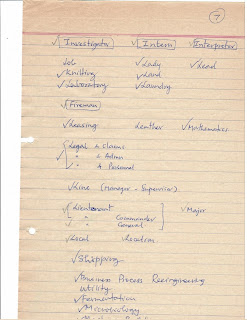 7
✓Investigator ✓Intern ✓Enterpreter
Job ✓Lady ✓Lead
✓Knitting ✓Land
✓Laboratory ✓Laundry
✓Fireman
✓Leasing Leather ✓Mathematics
✓Legal & Claims
✓ " & Admin
✓ " & Personnel
✓Line (Manager - Supervisor)
✓Lieutenant ✓Major
✓ " Commander
✓ " General
✓Local Location
✓Shipping
✓Business Process Reengineering
Utility
✓Fermentation
✓Microbiology